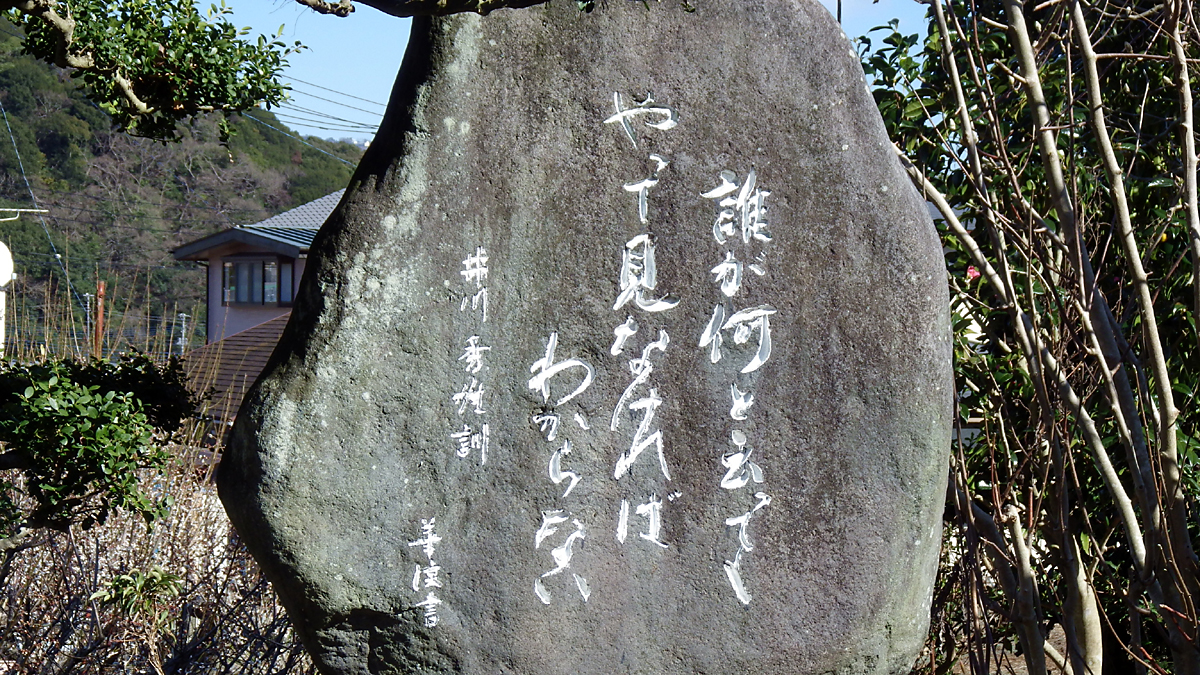 誰が何と云っても
やって見なければ
わからない
井川秀雄訓
華 書